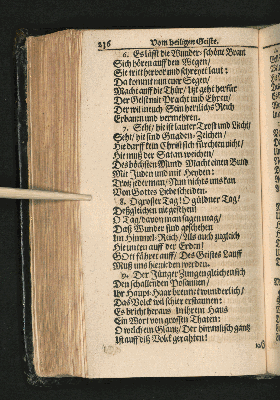 236 Vom heiligen Geiste.
6. Es läſſt die Wunder-ſchöne Braut
Sich hören auff den Wegen/
Sie tritt hervor und ſchreyet laut:
Da kommt nun ewr Segen/
Macht auff die Thür/ itzt geht herfür
Der Geiſt mit Pracht und Ehren/
Der wil euch Sein herrlichs Reich
Erbauen und vermehren.
7. Seht/ hie iſt lauter Troſt und Licht/
Seht/ hie ſind Gnaden-Zeichen/
Hie darff kein Chriſt ſich fürchten nicht/
Hie muß der Satan weichen/
Des höchſten Mund Macht einen Bund
Mit Juden und mit Heyden:
Trotz jederman/ Nun nichts uns kan
Von Gottes Liebe ſcheiden.
8. O groſſer Tag! O güldner Tag/
Deßgleichen nie geſehen!
O Tag/ davon man ſagen mag/
Daß Wunder ſind geſchehen
Im Himmel-Reich/ Als auch zugleich
Hie unten auff der Erden/
Gott fähret auff/ Des Geiſtes Lauff
Muß uns hienieden werden.
9. Der Jünger Zungen gleichen ſich
Den ſchallenden Poſaunen/
Ihr Haupt-Haar brennet wunderlich/
Das Volck wil ſchier erſtaunen:
Es bricht heraus In ihrem Haus
Ein Wort von groſſen Thaten:
O welch ein Glantz/ Der himmliſch gantz
Iſt auff diß Volck gerahten!